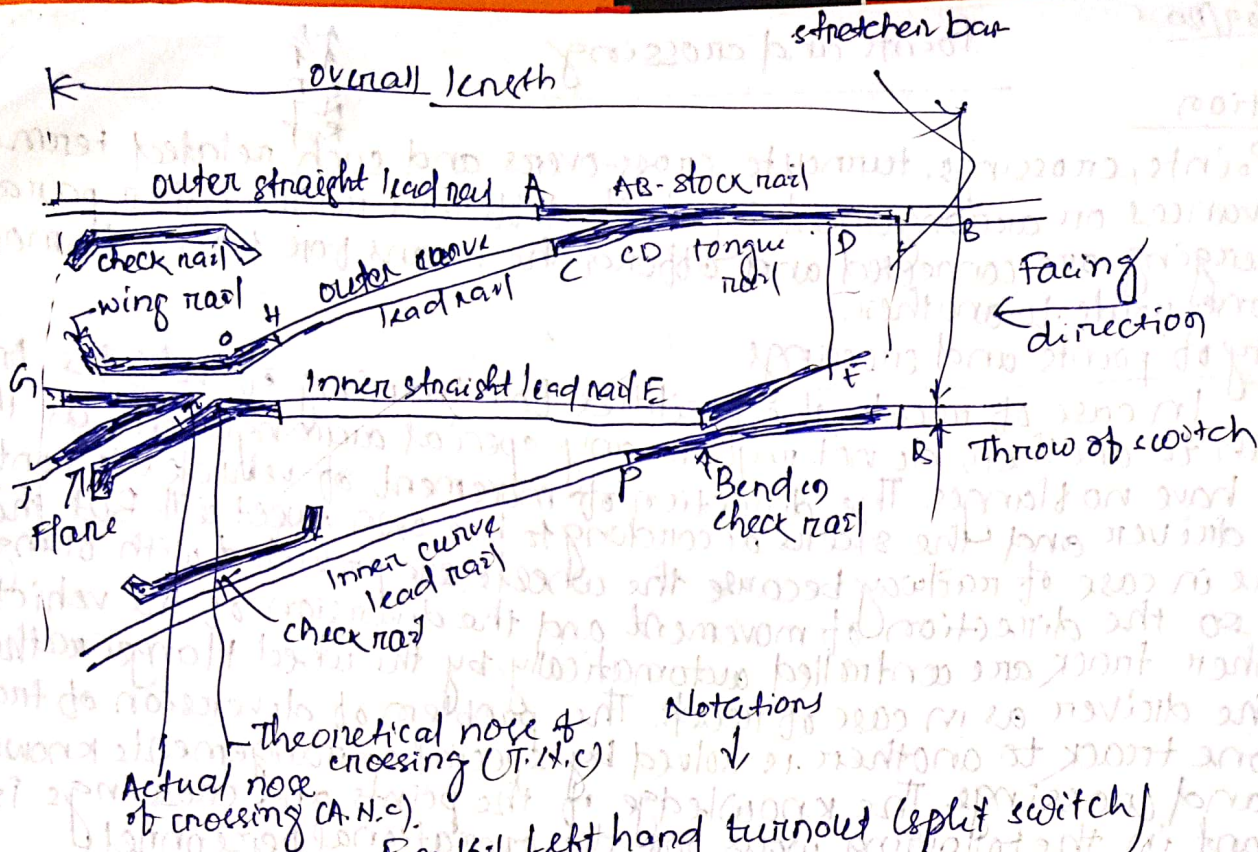 stretcher bar
overall length
outer straight lead rail A AB-stock rail
B
check rail
outer curve
lead rail
C CD tongue
rail
D
Facing
direction
wing rail
O H
G
Inner straight lead rail E
F
B Throw of switch
J
Flare
P
Bend in
check rail
Inner curve
lead rail
check rail
Theoretical nose of
crossing (T.N.C)
Notations
Actual nose
of crossing (A.N.C).
Left hand turnout (split switch)